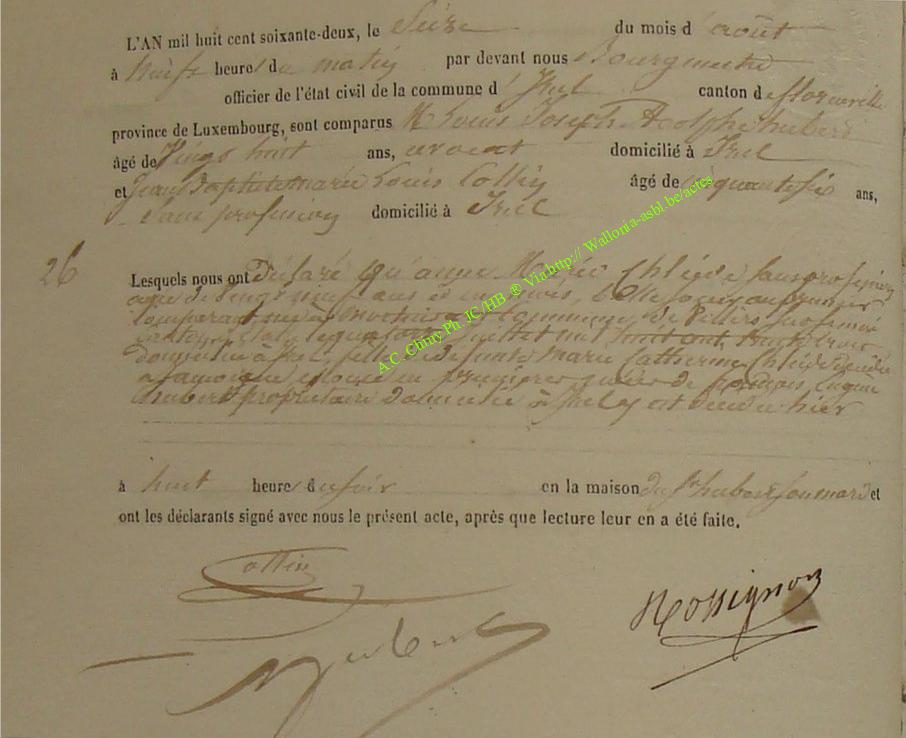 L'AN mil huit cent soixante-deux, le Seize du mois d'août
à Neuf heure du matin par devant nous Bourgmestre
officier de l'état civil de la commune d'Izel canton de florenville
province de Luxembourg, sont comparus M Louis Joseph Adolphe hubert
âgé de Vingt huit ans, avocat domicilié à Izel
et Jean Baptiste Marie Louis Collin âgé de cinquante six ans,
Sans profession domicilié à Izel
26
Lesquels nous ont Déclaré qu'anne Marie sans profession
agée de Vingt neuf ans et, belle soeur au premier
Comparant, née à commune de Villers
canton juillet mil huit cent trente trois
domiciliée à Izel, fille de defunte Marie Catherine décédée
à Jamoigne, épouse en premières noces de françois Eugene
hubert, propriétaire Domicilié à Izel, est décédée hier
à huit heure du soir en la maison du Sr hubert son mari et
ont les déclarants signé avec nous le présent acte, après que lecture leur en a été faite.
Collin
Hubert
Rossignon
A.C. Chiny Ph. JC/HB ® Via http:// Wallonia-asbl.be/actes